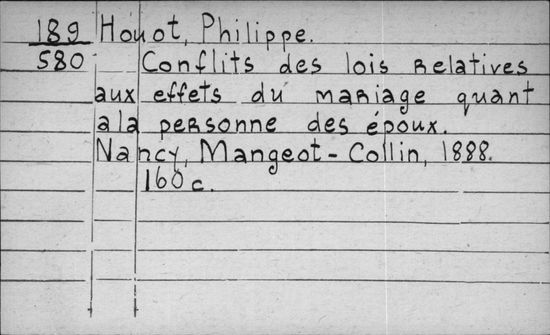 189 Houot, Philippe.
580 Conflits des lois relatives
aux effets du mariage quant
a la personne des époux.
Nancy, Mangeot-Collin, 1888.
160 c.